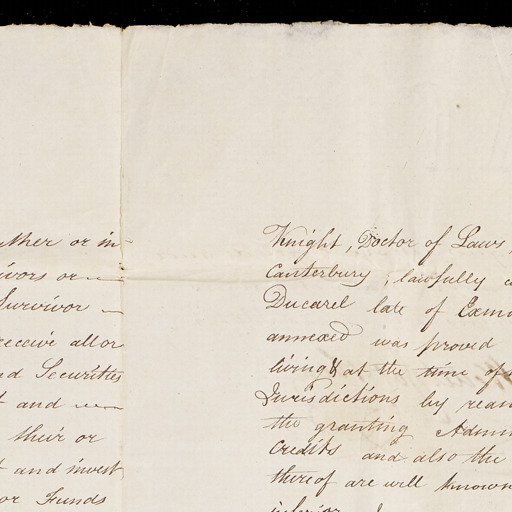 ther or in-
ivors or
Survivor
receive all or
nd Securities
t and
their or
t and invest
or Funds
Knight, Doctor of Laws,
Canterbury, lawfully c
Ducarel late of Exmo
annexed was proved
living & at the time of
Jurisdictions by reas
the granting Admin
Credits and also the
thereof are well known
inferior